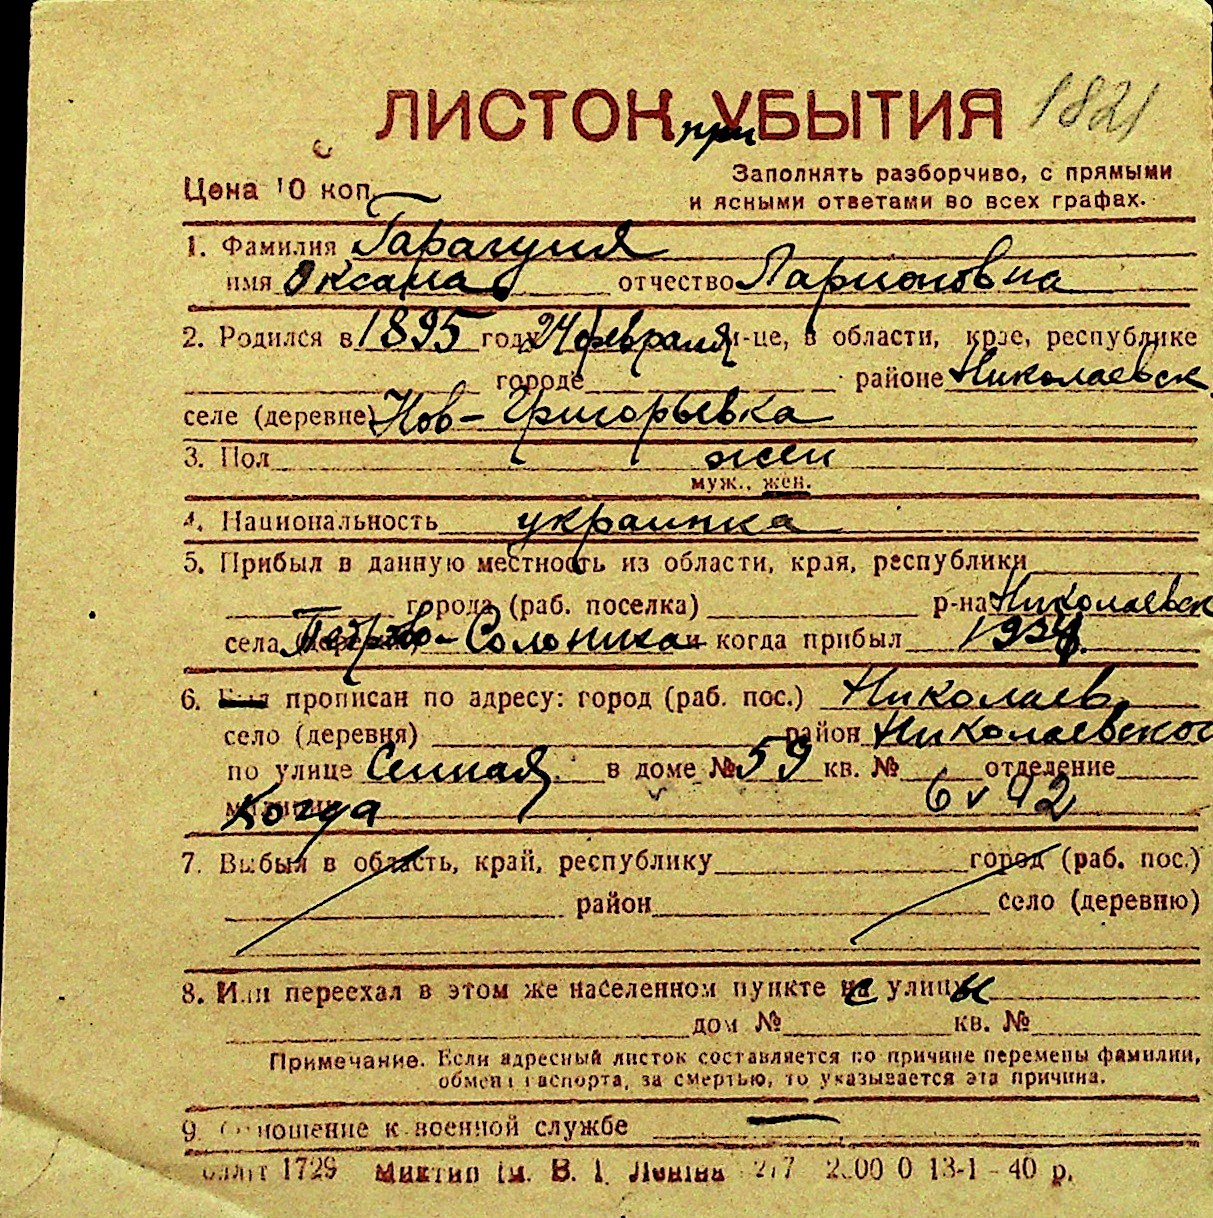 ЛИСТОК УБЫТИЯ 1821
при
Цена 10 коп.
Заполнять разборчиво, с прямыми
и ясными ответами во всех графах.
1. Фамилия Гарагуля
имя Оксана отчество Ларионовна
2. Родился в 1895 году 24 февраля м-це, в области, крае, республике
городе районе Николаевск
селе (деревне) Нов-Григорьевка
3. Пол жен
муж., жен.
4. Национальность украинка
5. Прибыл в данную местность из области, края, республики
города (раб. поселка) р-на Николаевск
села Петрово-Солониха и когда прибыл
6. Был прописан по адресу: город (раб. пос.) Николаев
село (деревня) район Николаевског
по улице Сенная в доме № 59 кв. № отделение
Когда 6 v 42
7. Выбыл в область, край, республику город (раб. пос.)
район село (деревню)
8. Или переехал в этом же населенном пункте с улицы
дом № кв. №
Примечание. Если адресный листок составляется по причине перемены фамилии,
обмена паспорта, за смертью, то указывается эта причина.
9. Отношение к военной службе —
1729 В. І. Леніна 13-1 - 40 р.